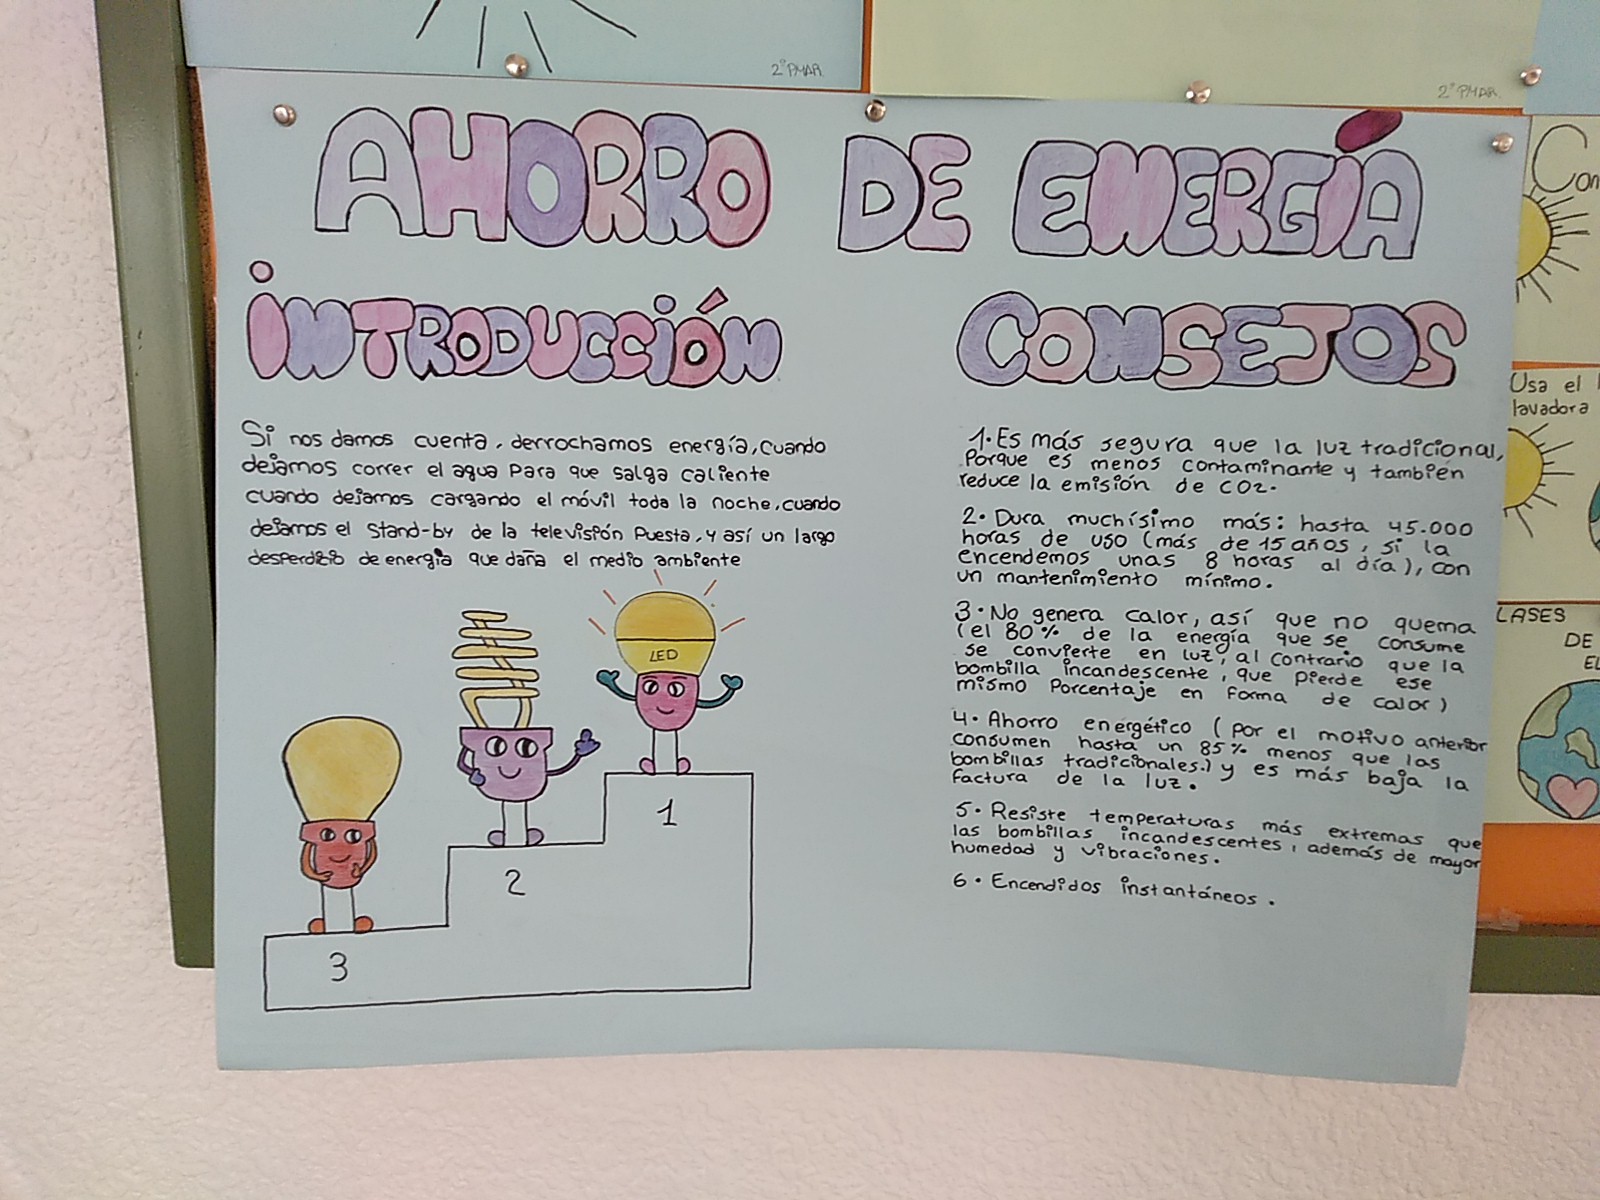 2º PMAR
2º PMAR
AHORRO DE ENERGÍA
INTRODUCCIÓN
Si nos damos cuenta, derrochamos energía, cuando
dejamos correr el agua para que salga caliente
cuando dejamos cargando el móvil toda la noche, cuando
dejamos el stand-by de la televisión puesta, y así un largo
desperdicio de energía que daña el medio ambiente
LED
1
2
3
CONSEJOS
1. Es más segura que la luz tradicional,
Porque es menos contaminante y también
reduce la emisión de CO2.
2. Dura muchísimo más: hasta 45.000
horas de uso (más de 15 años, si la
encendemos unas 8 horas al día), con
un mantenimiento mínimo.
3. No genera calor, así que no quema
(el 80% de la energía que se consume
se convierte en luz, al contrario que la
bombilla incandescente, que pierde ese
mismo porcentaje en forma de calor)
4. Ahorro energético (por el motivo anterior
consumen hasta un 85% menos que las
bombillas tradicionales.) y es más baja la
factura de la luz.
5. Resiste temperaturas más extremas que
las bombillas incandescentes, además de mayor
humedad y vibraciones.
6. Encendidos instantáneos.
Con
Usa el
lavadora
LASES
DE
EL